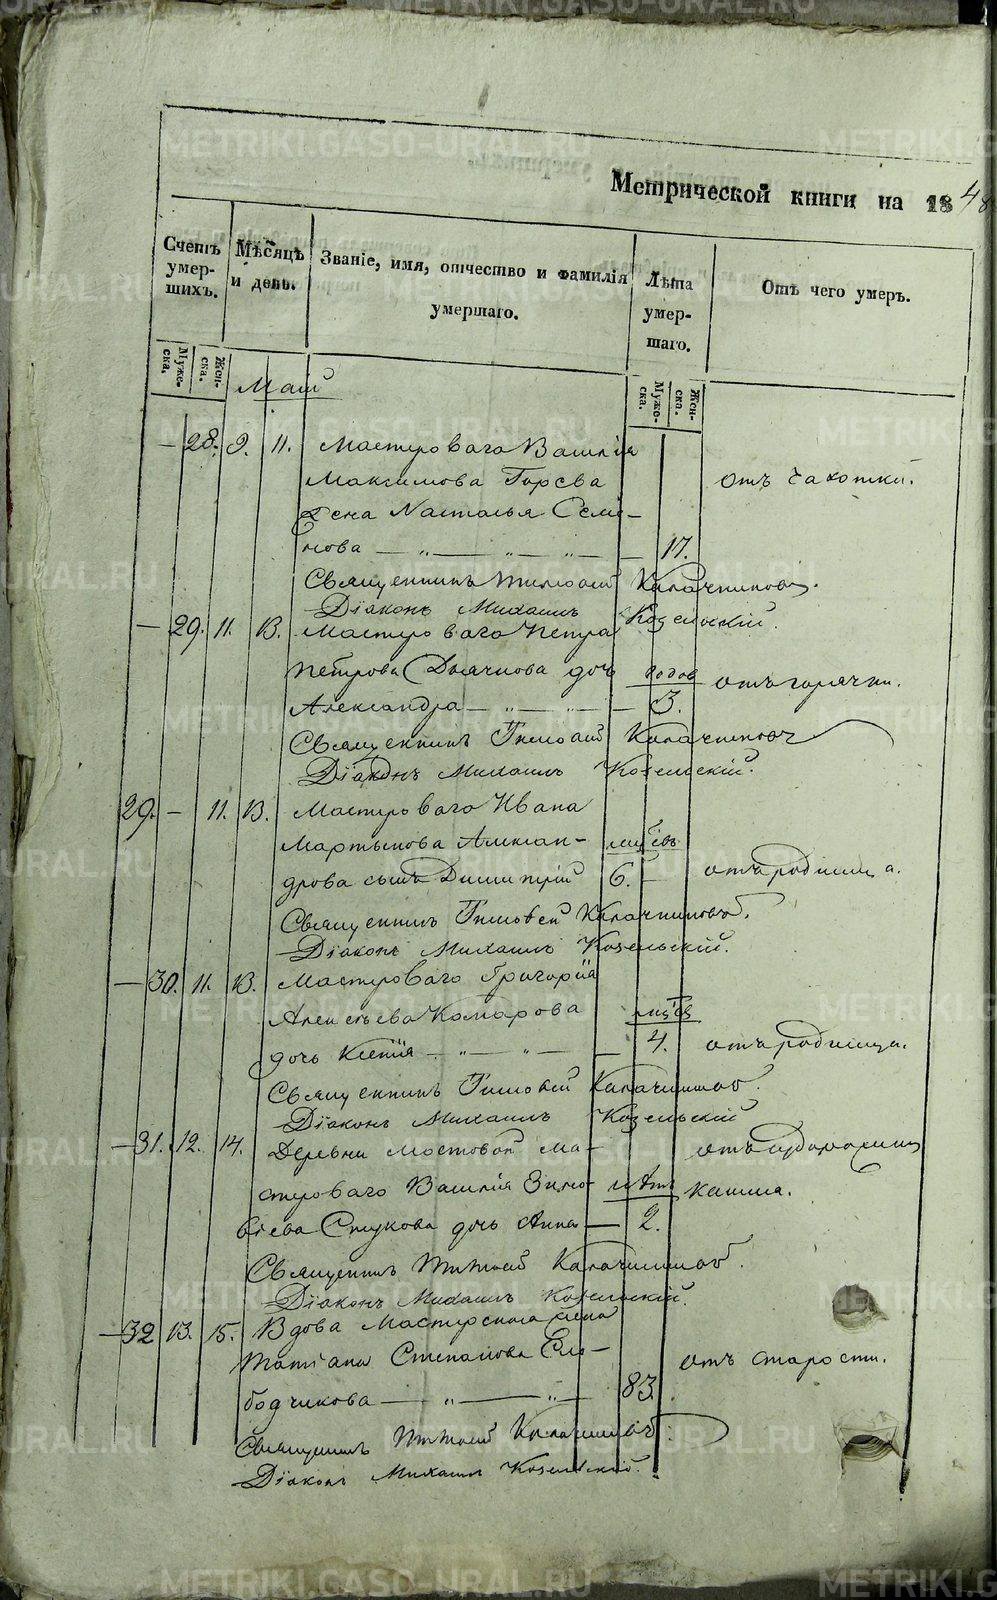 Метрической книги на 1848
Счетъ умер-шихъ.
Мѣсяцъ и день.
Званіе, имя, отчество и фамилія умершаго.
Лѣта умер-шаго.
Отъ чего умеръ.
Муже-ска.
Жен-ска.
Муже-ска.
Жен-ска.
Маій
— 28. 9. 11. Мастероваго Василія
Максимова Горева отъ чахотки.
жена Наталья Семе-
нова — „ — „ — „ — — 17.
Священникъ Тимофей Калачниковъ.
Діаконъ Михаилъ Козельскій.
— 29. 11. 13. Мастероваго Петра
Петрова Дьячкова дочь годов отъ горячки.
Александра — „ — „ — — 3.
Священникъ Тимофей Калачниковъ
Діаконъ Михаилъ Козельскій.
29. — 11. 13. Мастероваго Ивана
Мартынова Алексан- мцѣвъ
дрова сынъ Димитрій 6. — отъ родимца.
Священникъ Тимофей Калачниковъ.
Діаконъ Михаилъ Козельскій.
— 30. 11. 13. Мастероваго Григорія
Алексѣева Комарова мцѣв
дочь Ксенія — „ — „ — — 4. отъ родимца.
Священникъ Тимофей Калачниковъ.
Діаконъ Михаилъ Козельскій
— 31. 12. 14. Деревни Мостовой ма-
стероваго Василія Зино- лѣтъ кашля.
віева Стукова дочь Анна — 2.
Священникъ Тимофей Калачниковъ.
Діаконъ Михаилъ Козельскій.
— 32 13. 15. Вдова Мастерская жена
Татіана Степанова отъ старости.
— „ — „ — 83.
Священникъ Тимофей Калачниковъ.
Діаконъ Михаилъ Козельскій.
METRIKI.GASO-URAL.RU